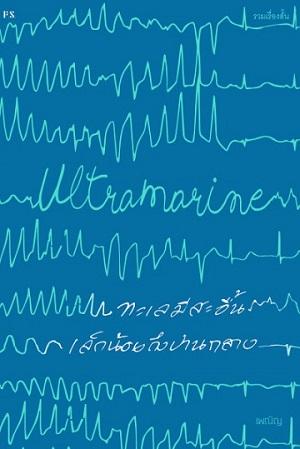 P.S
รวมเรื่องสั้น
Ultramarine
ทะเลมีสะอื้น
เล็กน้อยถึงปานกลาง